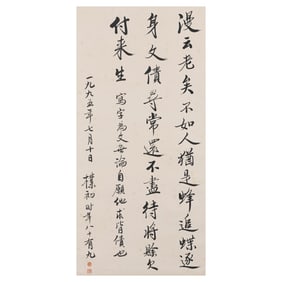 漫云老矣不如人猶是蜂追蝶逐
身文債尋常還不盡待將賒欠
付来生 寫字為文无論自願他求皆債也
一九九五年七月十日 樸初时年八十有九